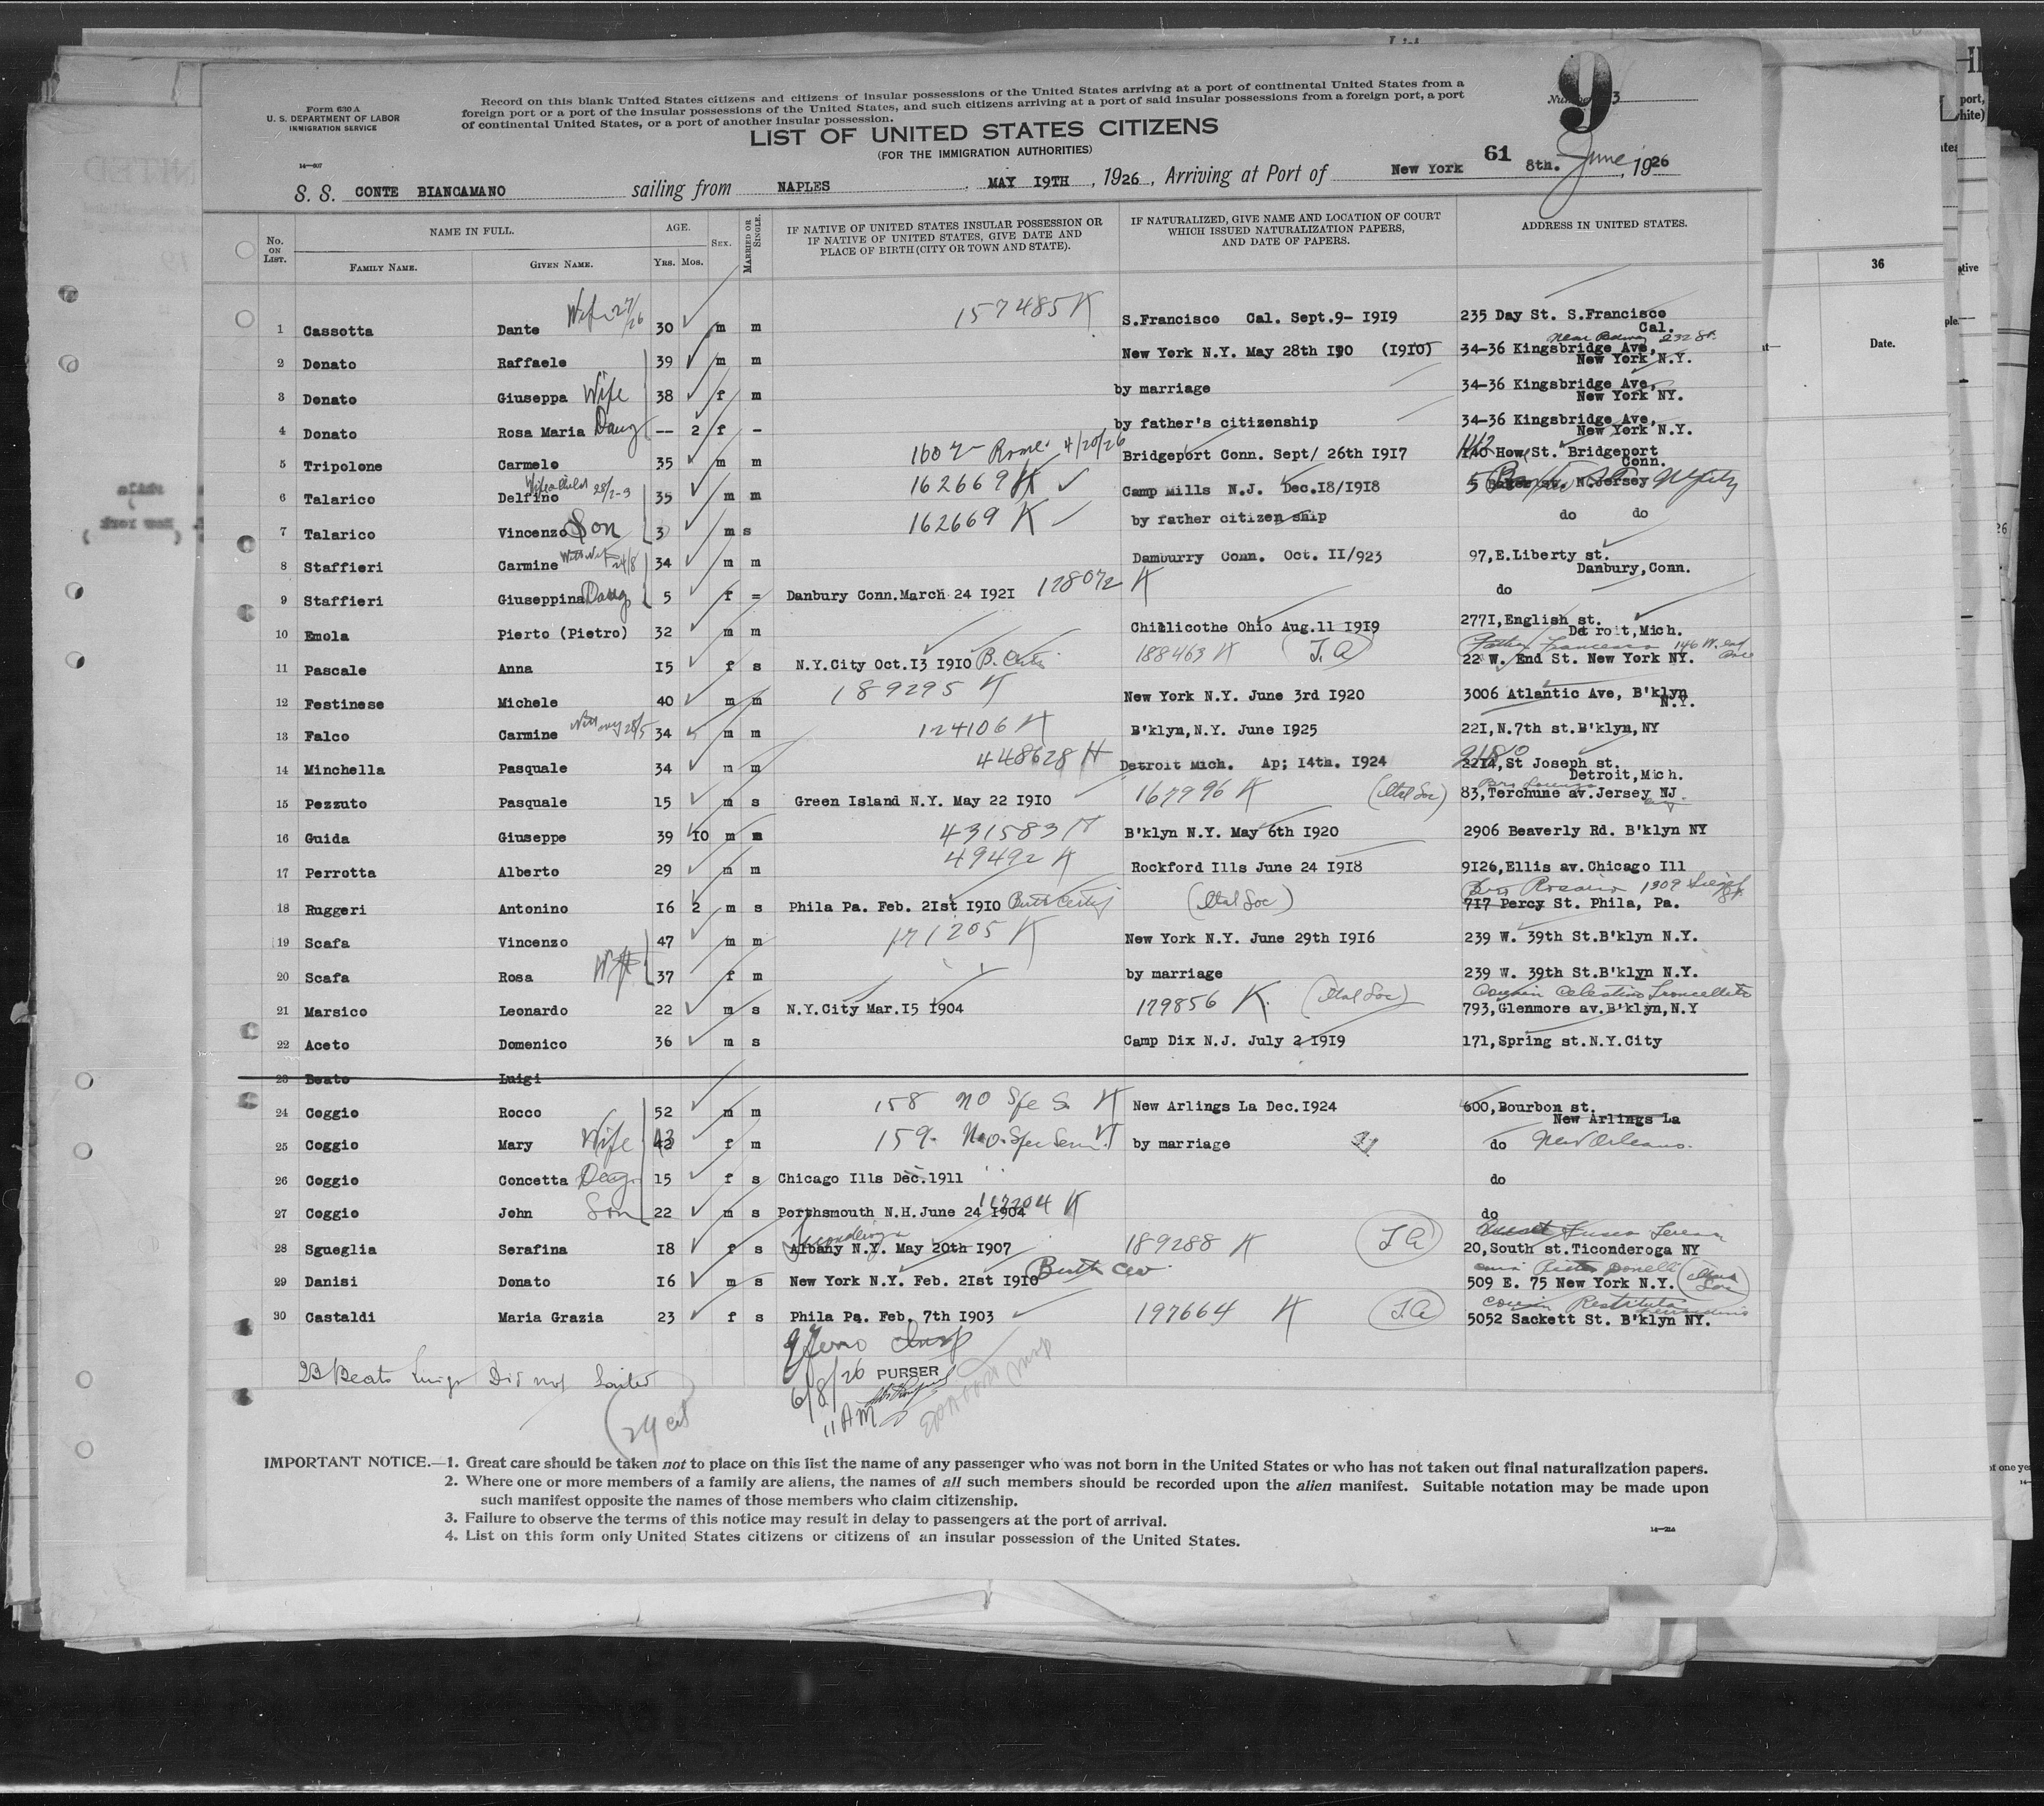 Form 630 A
U. S. DEPARTMENT OF LABOR
IMMIGRATION SERVICE
14—607
Record on this blank United States citizens and citizens of insular possessions of the United States arriving at a port of continental United States from a
foreign port or a port of the insular possessions of the United States, and such citizens arriving at a port of said insular possessions from a foreign port, a port
of continental United States, or a port of another insular possession.
9
3
LIST OF UNITED STATES CITIZENS
(FOR THE IMMIGRATION AUTHORITIES)
61
S. S. CONTE BIANCAMANO sailing from NAPLES, MAY I9TH, 1926, Arriving at Port of New York 8th. June, 1926
No. ON LIST. NAME IN FULL. FAMILY NAME. GIVEN NAME. AGE. YRS. MOS. SEX. MARRIED OR SINGLE. IF NATIVE OF UNITED STATES INSULAR POSSESSION OR IF NATIVE OF UNITED STATES, GIVE DATE AND PLACE OF BIRTH (CITY OR TOWN AND STATE). IF NATURALIZED, GIVE NAME AND LOCATION OF COURT WHICH ISSUED NATURALIZATION PAPERS, AND DATE OF PAPERS. ADDRESS IN UNITED STATES.
1 Cassotta Dante 30 m m 157485 K S.Francisco Cal. Sept.9- I9I9 235 Day St. S.Francisco Cal.
2 Donato Raffaele 39 m m New York N.Y. May 28th I910 (I9IO) 34-36 Kingsbridge Ave, New York N.Y.
3 Donato Giuseppa Wife 38 f m by marriage 34-36 Kingsbridge Ave, New York NY.
4 Donato Rosa Maria Daug -- 2 f - by father's citizenship 34-36 Kingsbridge Ave, New York N.Y.
5 Tripolone Carmelo 35 m m Rome 4/20/26 Bridgeport Conn. Sept/ 26th I9I7 How St. Bridgeport Conn.
6 Talarico Delfino 35 m m 162669 K Camp Mills N.J. Dec.I8/I9I8 5 Baxter St. N.Jersey
7 Talarico Vincenzo Son 3 m s 162669 K by father citizen ship do do
8 Staffieri Carmine 34 m m Damburry Conn. Oct. II/923 97,E.Liberty st. Danbury,Conn.
9 Staffieri Giuseppina Daug 5 f = Danbury Conn.March 24 I92I 178072 K do
10 Emola Pierto (Pietro) 32 m m Chillicothe Ohio Aug.11 I9I9 277I,English st. Detroit,Mich.
11 Pascale Anna I5 f s N.Y.City Oct.I3 I9I0 B. Certi 188463 K Father Francesco 146 W. end ave 22 W. End St. New York NY.
12 Festinese Michele 40 m m 189295 K New York N.Y. June 3rd I920 3006 Atlantic Ave, B'klyn N.Y.
13 Falco Carmine 34 m m 124106 K B'klyn,N.Y. June I925 22I,N.7th st.B'klyn,NY
14 Minchella Pasquale 34 m m 448628 H Detroit Mich. Ap; I4th. I924 9180 22I4,St Joseph st. Detroit,Mich.
15 Pezzuto Pasquale 15 m s Green Island N.Y. May 22 I9I0 167996 K (Ital Soc) 83,Terchune av.Jersey NJ
16 Guida Giuseppe 39 I0 m m 431583 B'klyn N.Y. May 6th I920 2906 Beaverly Rd. B'klyn NY
17 Perrotta Alberto 29 m m 49492 K Rockford Ills June 24 I9I8 9I26,Ellis av.Chicago Ill
18 Ruggeri Antonino I6 2 m s Phila Pa. Feb. 2Ist I9I0 Birth Certif (Ital Soc) Bro Rosario 1309 717 Percy St. Phila, Pa.
19 Scafa Vincenzo 47 m m 171205 K New York N.Y. June 29th I9I6 239 W. 39th St.B'klyn N.Y.
20 Scafa Rosa Wife 37 f m by marriage 239 W. 39th St.B'klyn N.Y.
21 Marsico Leonardo 22 m s N.Y.City Mar.I5 I904 179856 K. (Ital Soc) Cousin Celestino 793,Glenmore av.B'klyn,N.Y
22 Aceto Domenico 36 m s Camp Dix N.J. July 2 I9I9 171,Spring st.N.Y.City
23 Beato Luigi
24 Coggio Rocco 52 m m 158 NO K New Arlings La Dec.I924 600,Bourbon st. New Arlings La
25 Coggio Mary Wife 43 f m 159 N.O. by marriage do New Orleans.
26 Coggio Concetta Daug 15 f s Chicago Ills Dec.1911 do
27 Coggio John Son 22 m s Porthsmouth N.H.June 24 I904 K do
28 Sgueglia Serafina I8 f s Ticonderoga Albany N.Y. May 20th I907 189288 K 20,South st.Ticonderoga NY
29 Danisi Donato I6 m s New York N.Y. Feb. 2Ist I9I0 Birth Cer 509 E. 75 New York N.Y.
30 Castaldi Maria Grazia 23 f s Phila Pa. Feb. 7th I903 197664 K cousin Restituta 5052 Sackett St. B'klyn NY.
23 Beato Luigi Did not Sailed
6/8/26
11 AM
PURSER
IMPORTANT NOTICE.—1. Great care should be taken not to place on this list the name of any passenger who was not born in the United States or who has not taken out final naturalization papers.
2. Where one or more members of a family are aliens, the names of all such members should be recorded upon the alien manifest. Suitable notation may be made upon
such manifest opposite the names of those members who claim citizenship.
3. Failure to observe the terms of this notice may result in delay to passengers at the port of arrival.
4. List on this form only United States citizens or citizens of an insular possession of the United States.
36
Date.